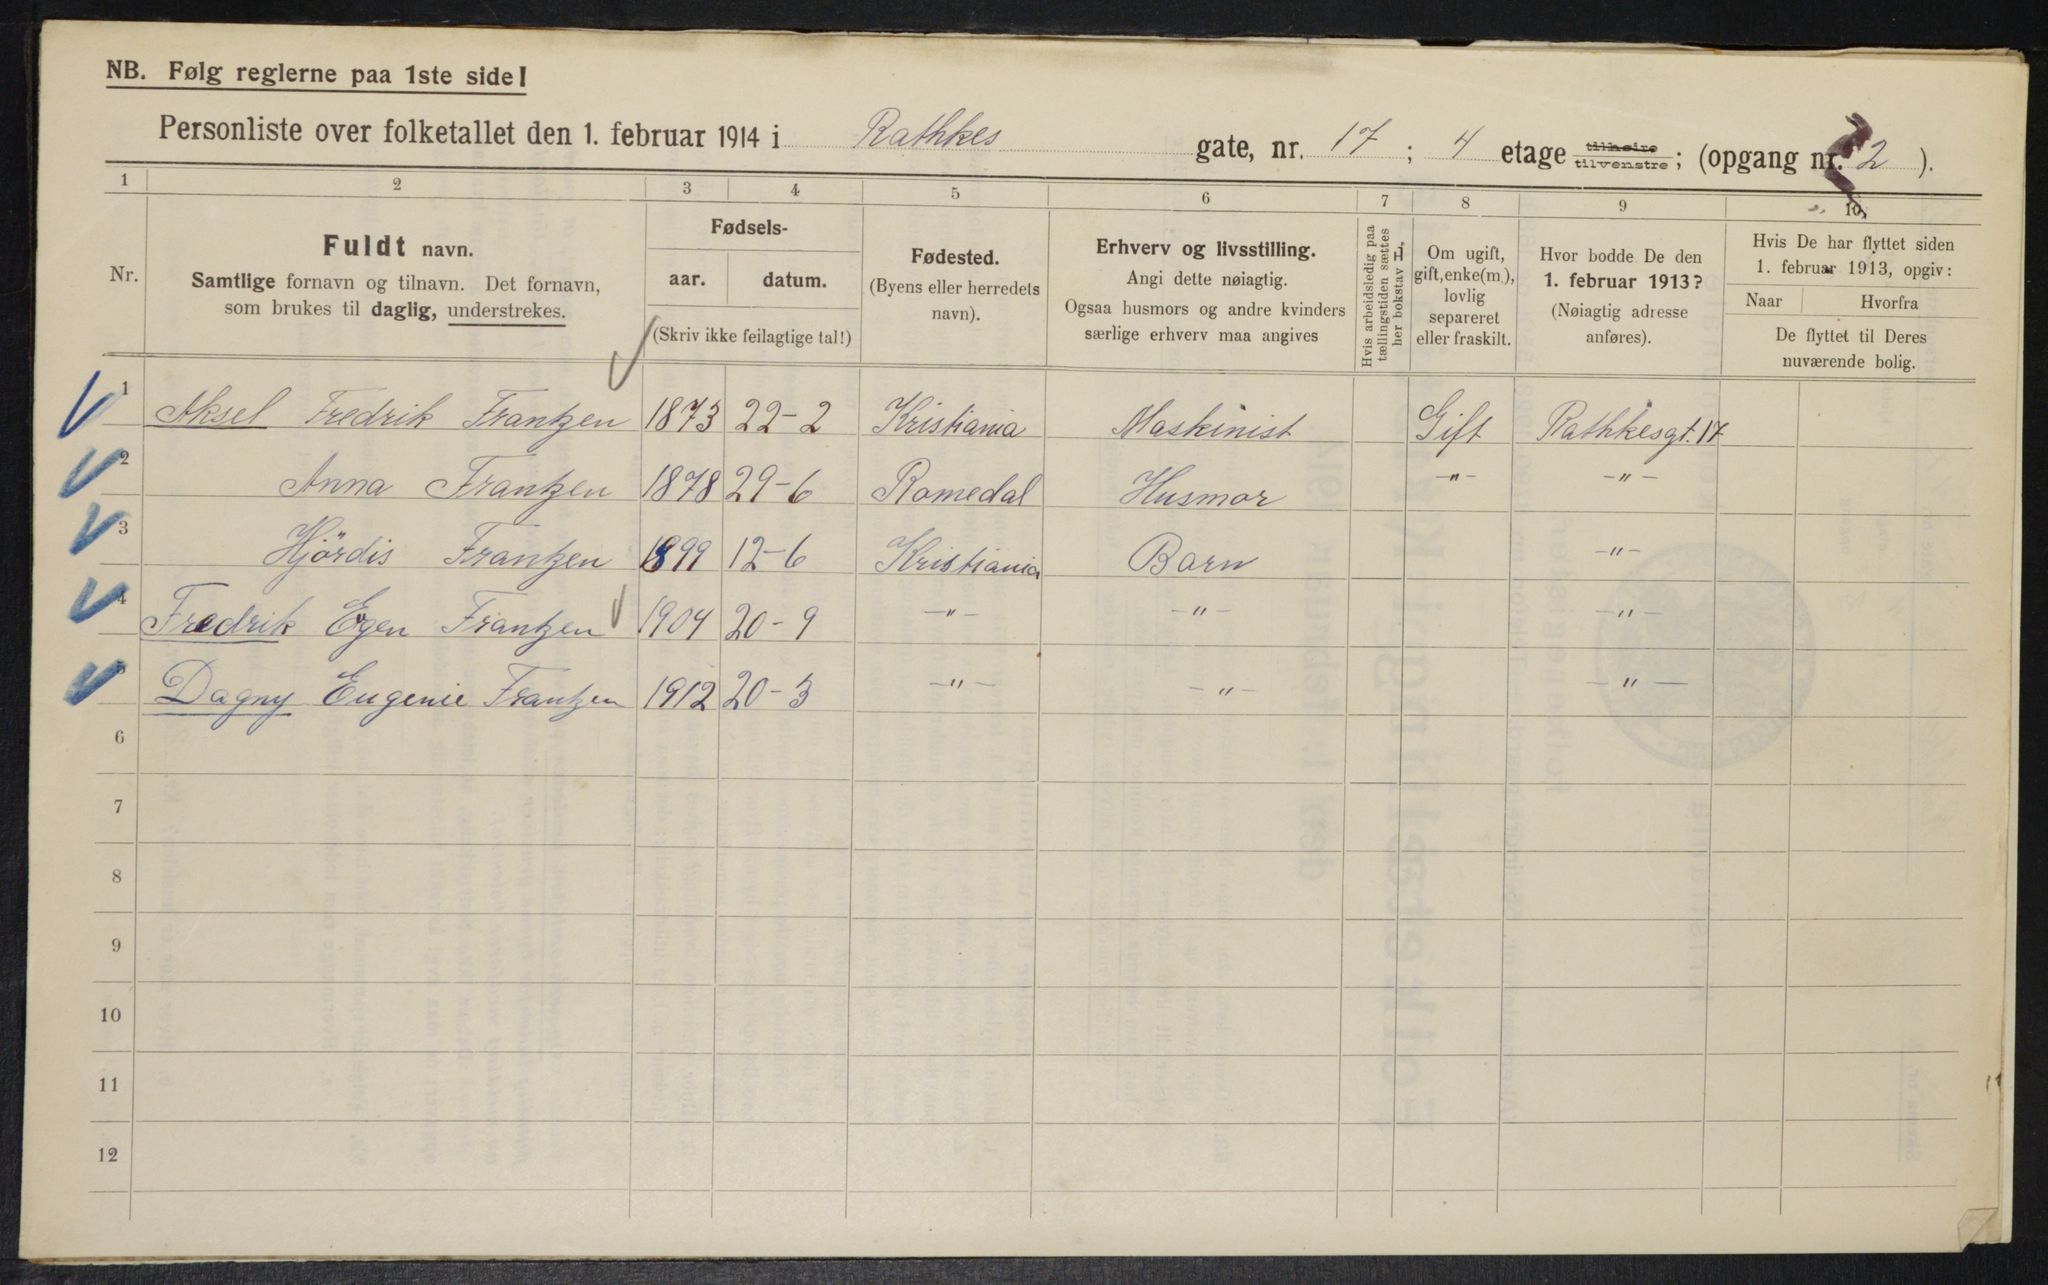 NB. Følg reglerne paa 1ste side!
Personliste over folketallet den 1. februar 1914 i Rathkes gate, nr. 17 ; 4 etage tilhøire tilvenstre ; (opgang nr. 2 ).
1 2 3 4 5 6 7 8 9 10
Nr.
Fuldt navn.
Samtlige fornavn og tilnavn. Det fornavn,
som brukes til daglig, understrekes.
Fødsels-
aar. datum.
(Skriv ikke feilagtige tal!)
Fødested.
(Byens eller herredets
navn).
Erhverv og livsstilling.
Angi dette nøiagtig.
Ogsaa husmors og andre kvinders
særlige erhverv maa angives
Hvis arbeidsledig paa
tællingstiden sættes
her bokstav L.
Om ugift,
gift, enke(m.),
lovlig
separeret
eller fraskilt.
Hvor bodde De den
1. februar 1913?
(Nøiagtig adresse
anføres).
Hvis De har flyttet siden
1. februar 1913, opgiv:
Naar Hvorfra
De flyttet til Deres
nuværende bolig.
1 Aksel Fredrik Frantzen 1873 22-2 Kristiania Maskinist Gift Rathkesgt. 17
2 Anna Frantzen 1878 29-6 Romedal Husmor -"- -"-
3 Hjördis Frantzen 1899 12-6 Kristiania Barn -"-
4 Fredrik Egen Frantzen 1904 20-9 -"- -"- -"-
5 Dagny Eugenie Frantzen 1912 20-3 -"- -"- -"-
6
7
8
9
10
11
12